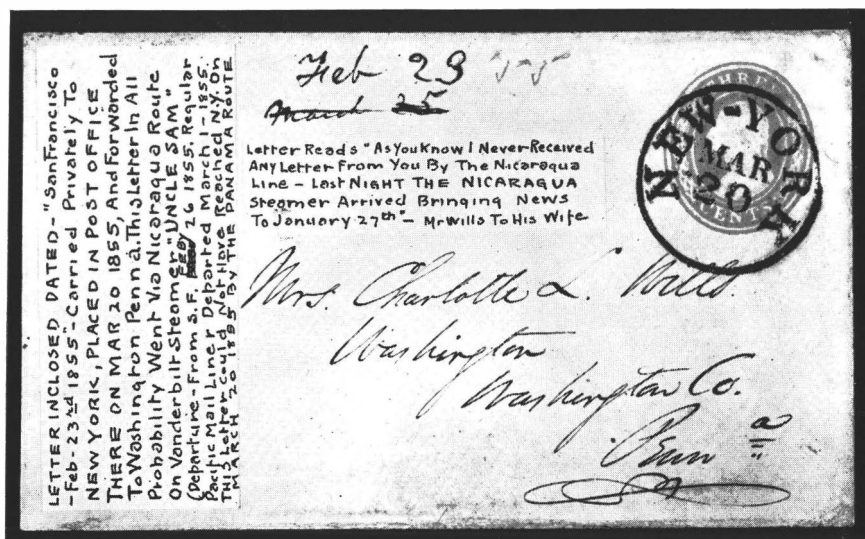 LETTER INCLOSED DATED - "San Francisco
- Feb - 23rd 1855" - Carried Privately To
NEW YORK, PLACED IN POST OFFICE
THERE ON MAR 20 1855, And Forwarded
To Washington Penna. This Letter In All
Probability Went Via Nicaragua Route
On Vanderbilt Steamer "UNCLE SAM"
(Departure - From S.F. FEBY 26 1855. Regular
Pacific Mail Liner Departed March 1 - 1855.
THIS Letter could Not Have Reached N.Y. On
MARCH 20 1855 BY THE PANAMA ROUTE
Feb 23 '55
March 25
Letter Reads "As You Know I Never Received
ANY Letter From You By The Nicaragua
Line - Last NIGHT THE NICARAGUA
Steamer Arrived Bringing News
To January 27th" - Mr Wills To His Wife
THREE
CENTS
NEW-YORK
MAR
20
Mrs. Charlotte L. Wills.
Washington
Washington Co.
Penn a